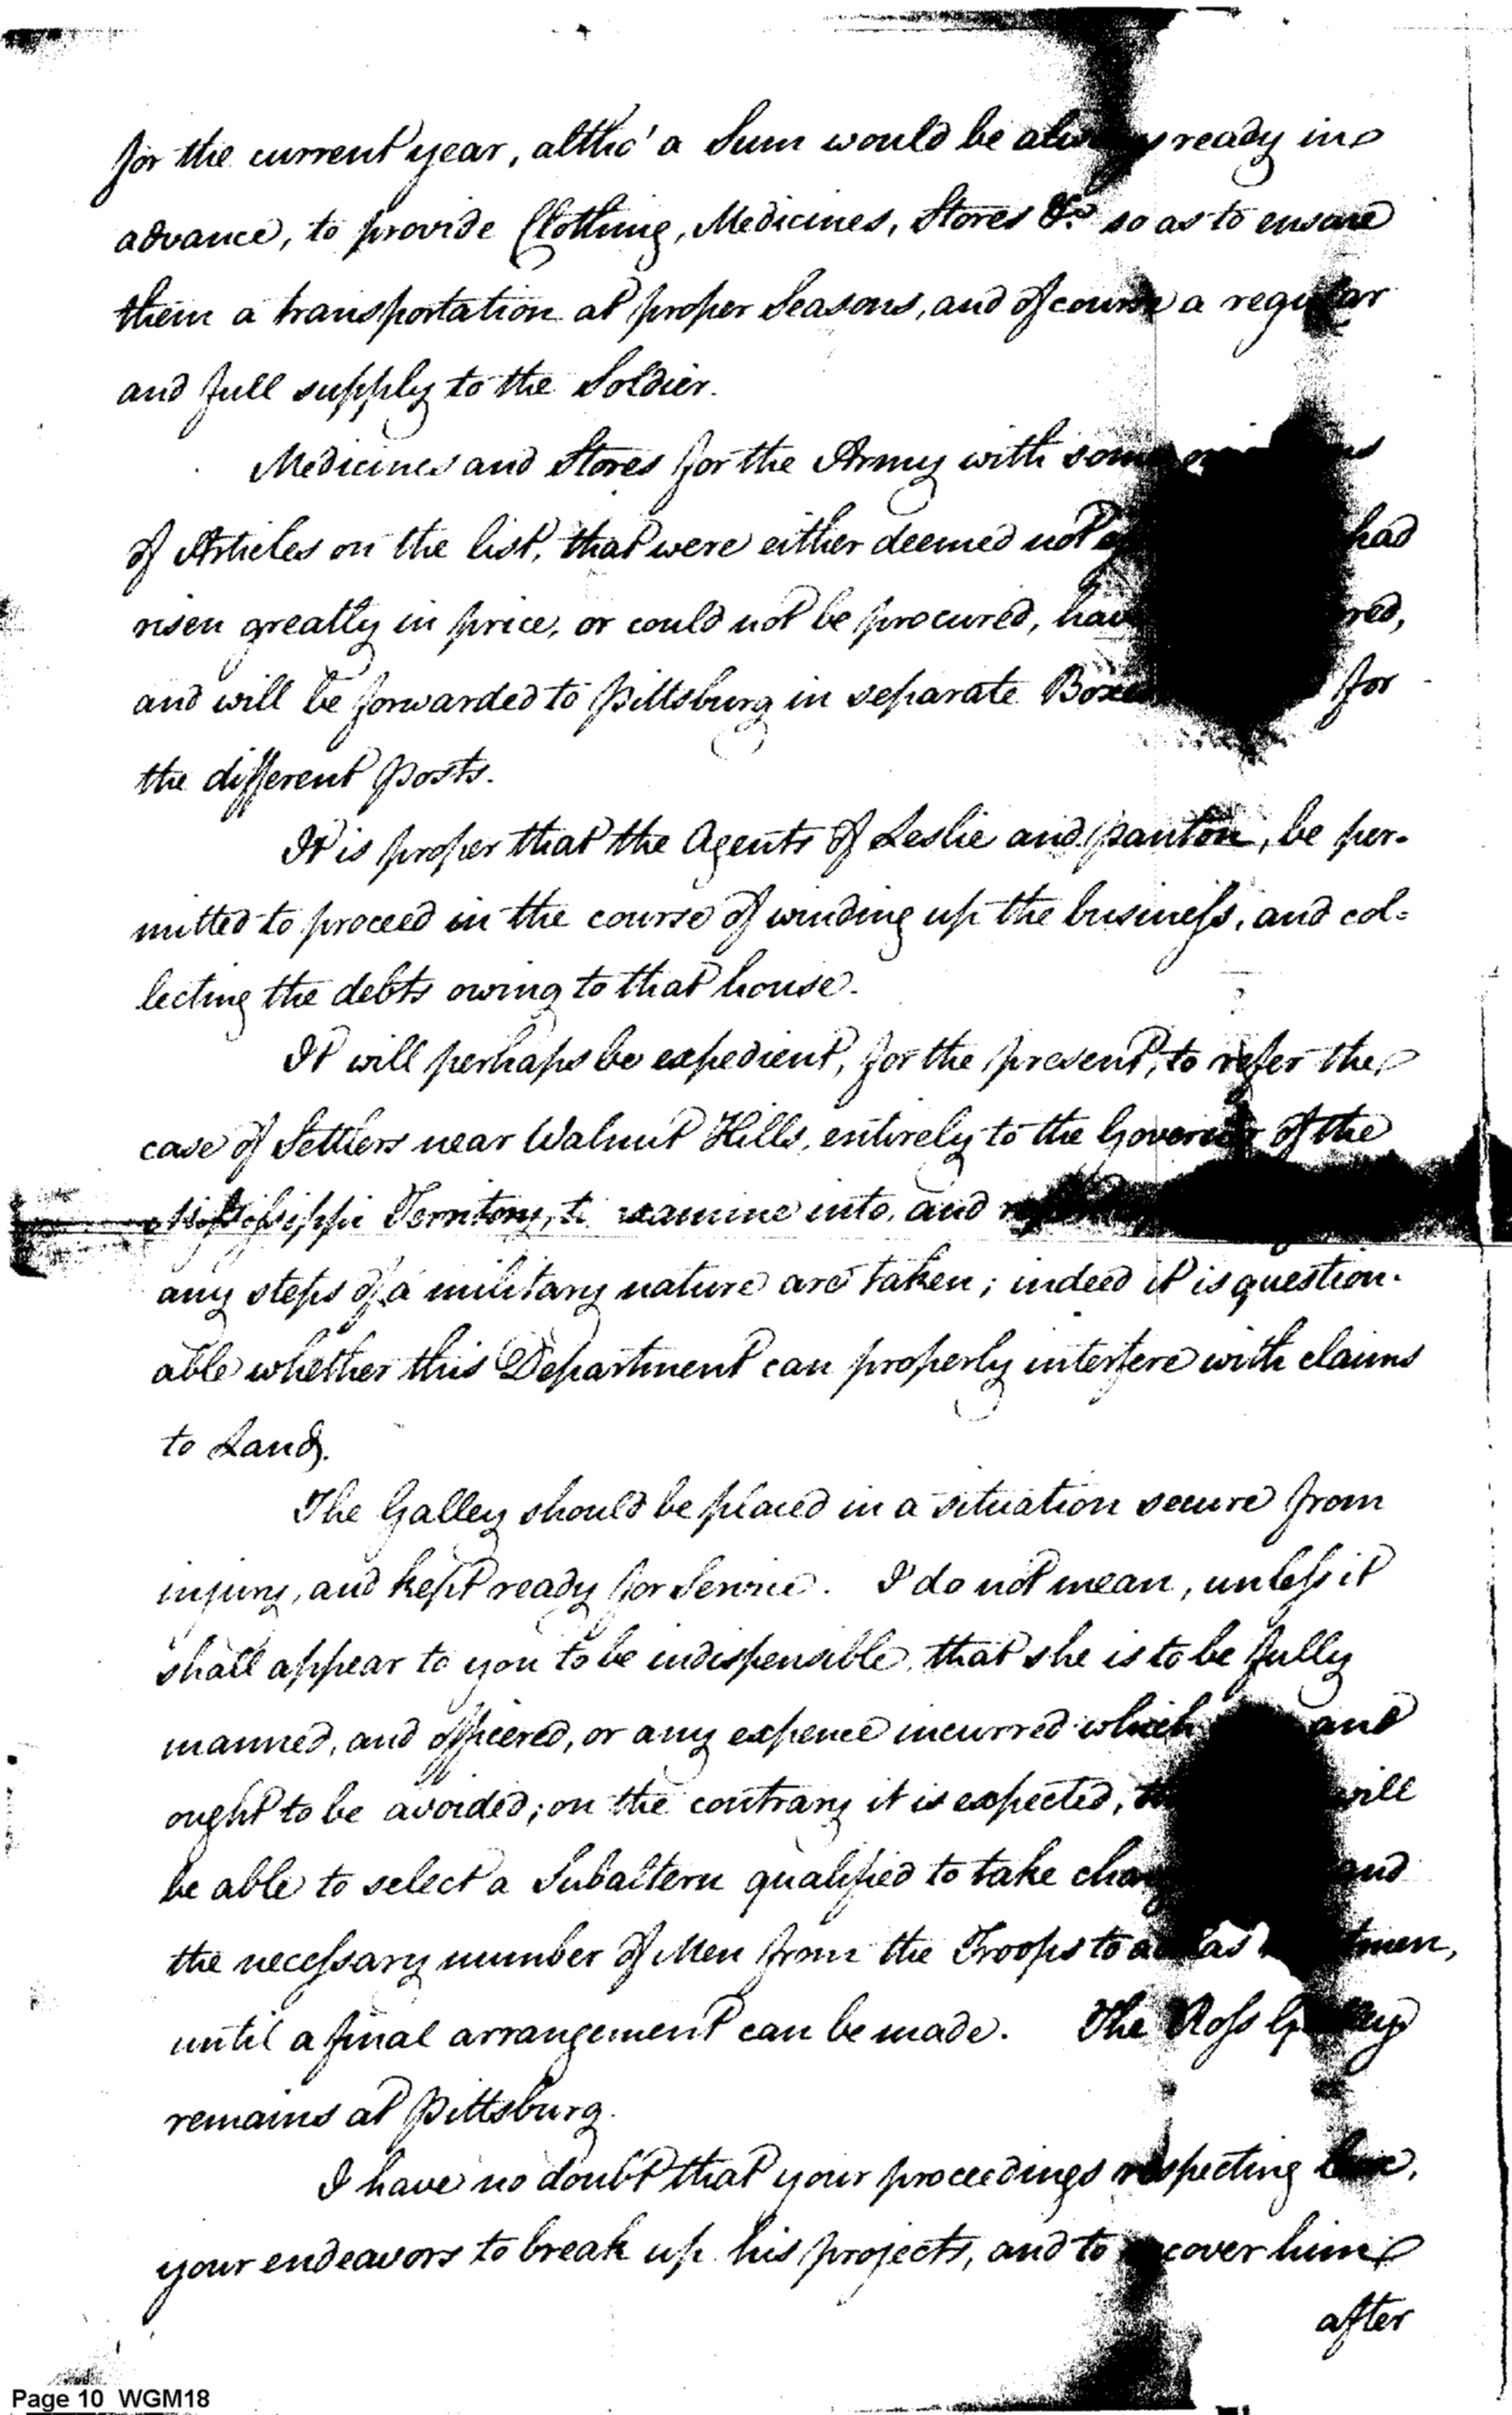 for the current year, altho' a Sum would be always ready in
advance, to provide Clothing, Medicines, Stores &c so as to ensure
them a transportation at proper Seasons, and of course a regular
and full supply to the Soldier.
Medicines and Stores for the Army with some
of Articles on the list, that were either deemed not had
risen greatly in price, or could not be procured, have
and will be forwarded to Pittsburg in separate Boxes for
the different posts.
It is proper that the Agents of Leslie and panton, be per-
mitted to proceed in the course of winding up the business, and col=
lecting the debts owing to that house.
It will perhaps be expedient, for the present, to refer the
case of Settlers near Walnut Hills, entirely to the Governor of the
Mississippi Territory, to examine into, and
any steps of a military nature are taken; indeed it is question-
able whether this Department can properly interfere with claims
to Land.
The Galley should be placed in a situation secure from
injury, and kept ready for Service. I do not mean, unless it
shall appear to you to be indispensible, that she is to be fully
manned, and officered, or any expence incurred which and
ought to be avoided; on the contrary it is expected, will
be able to select a Subaltern qualified to take and
the necessary number of Men from the Troops to act as
until a final arrangement can be made. The Ross Galley
remains at Pittsburg.
I have no doubt that your proceedings respecting
your endeavors to break up his projects, and to recover him
after
Page 10 WGM18